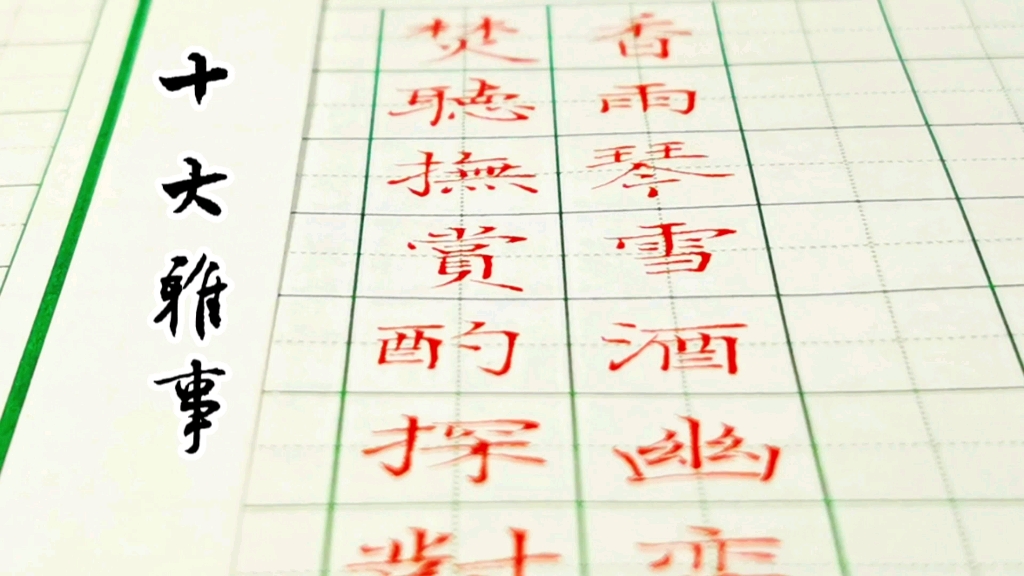 十大雅事
焚香
聽雨
撫琴
賞雪
酌酒
探幽
對弈